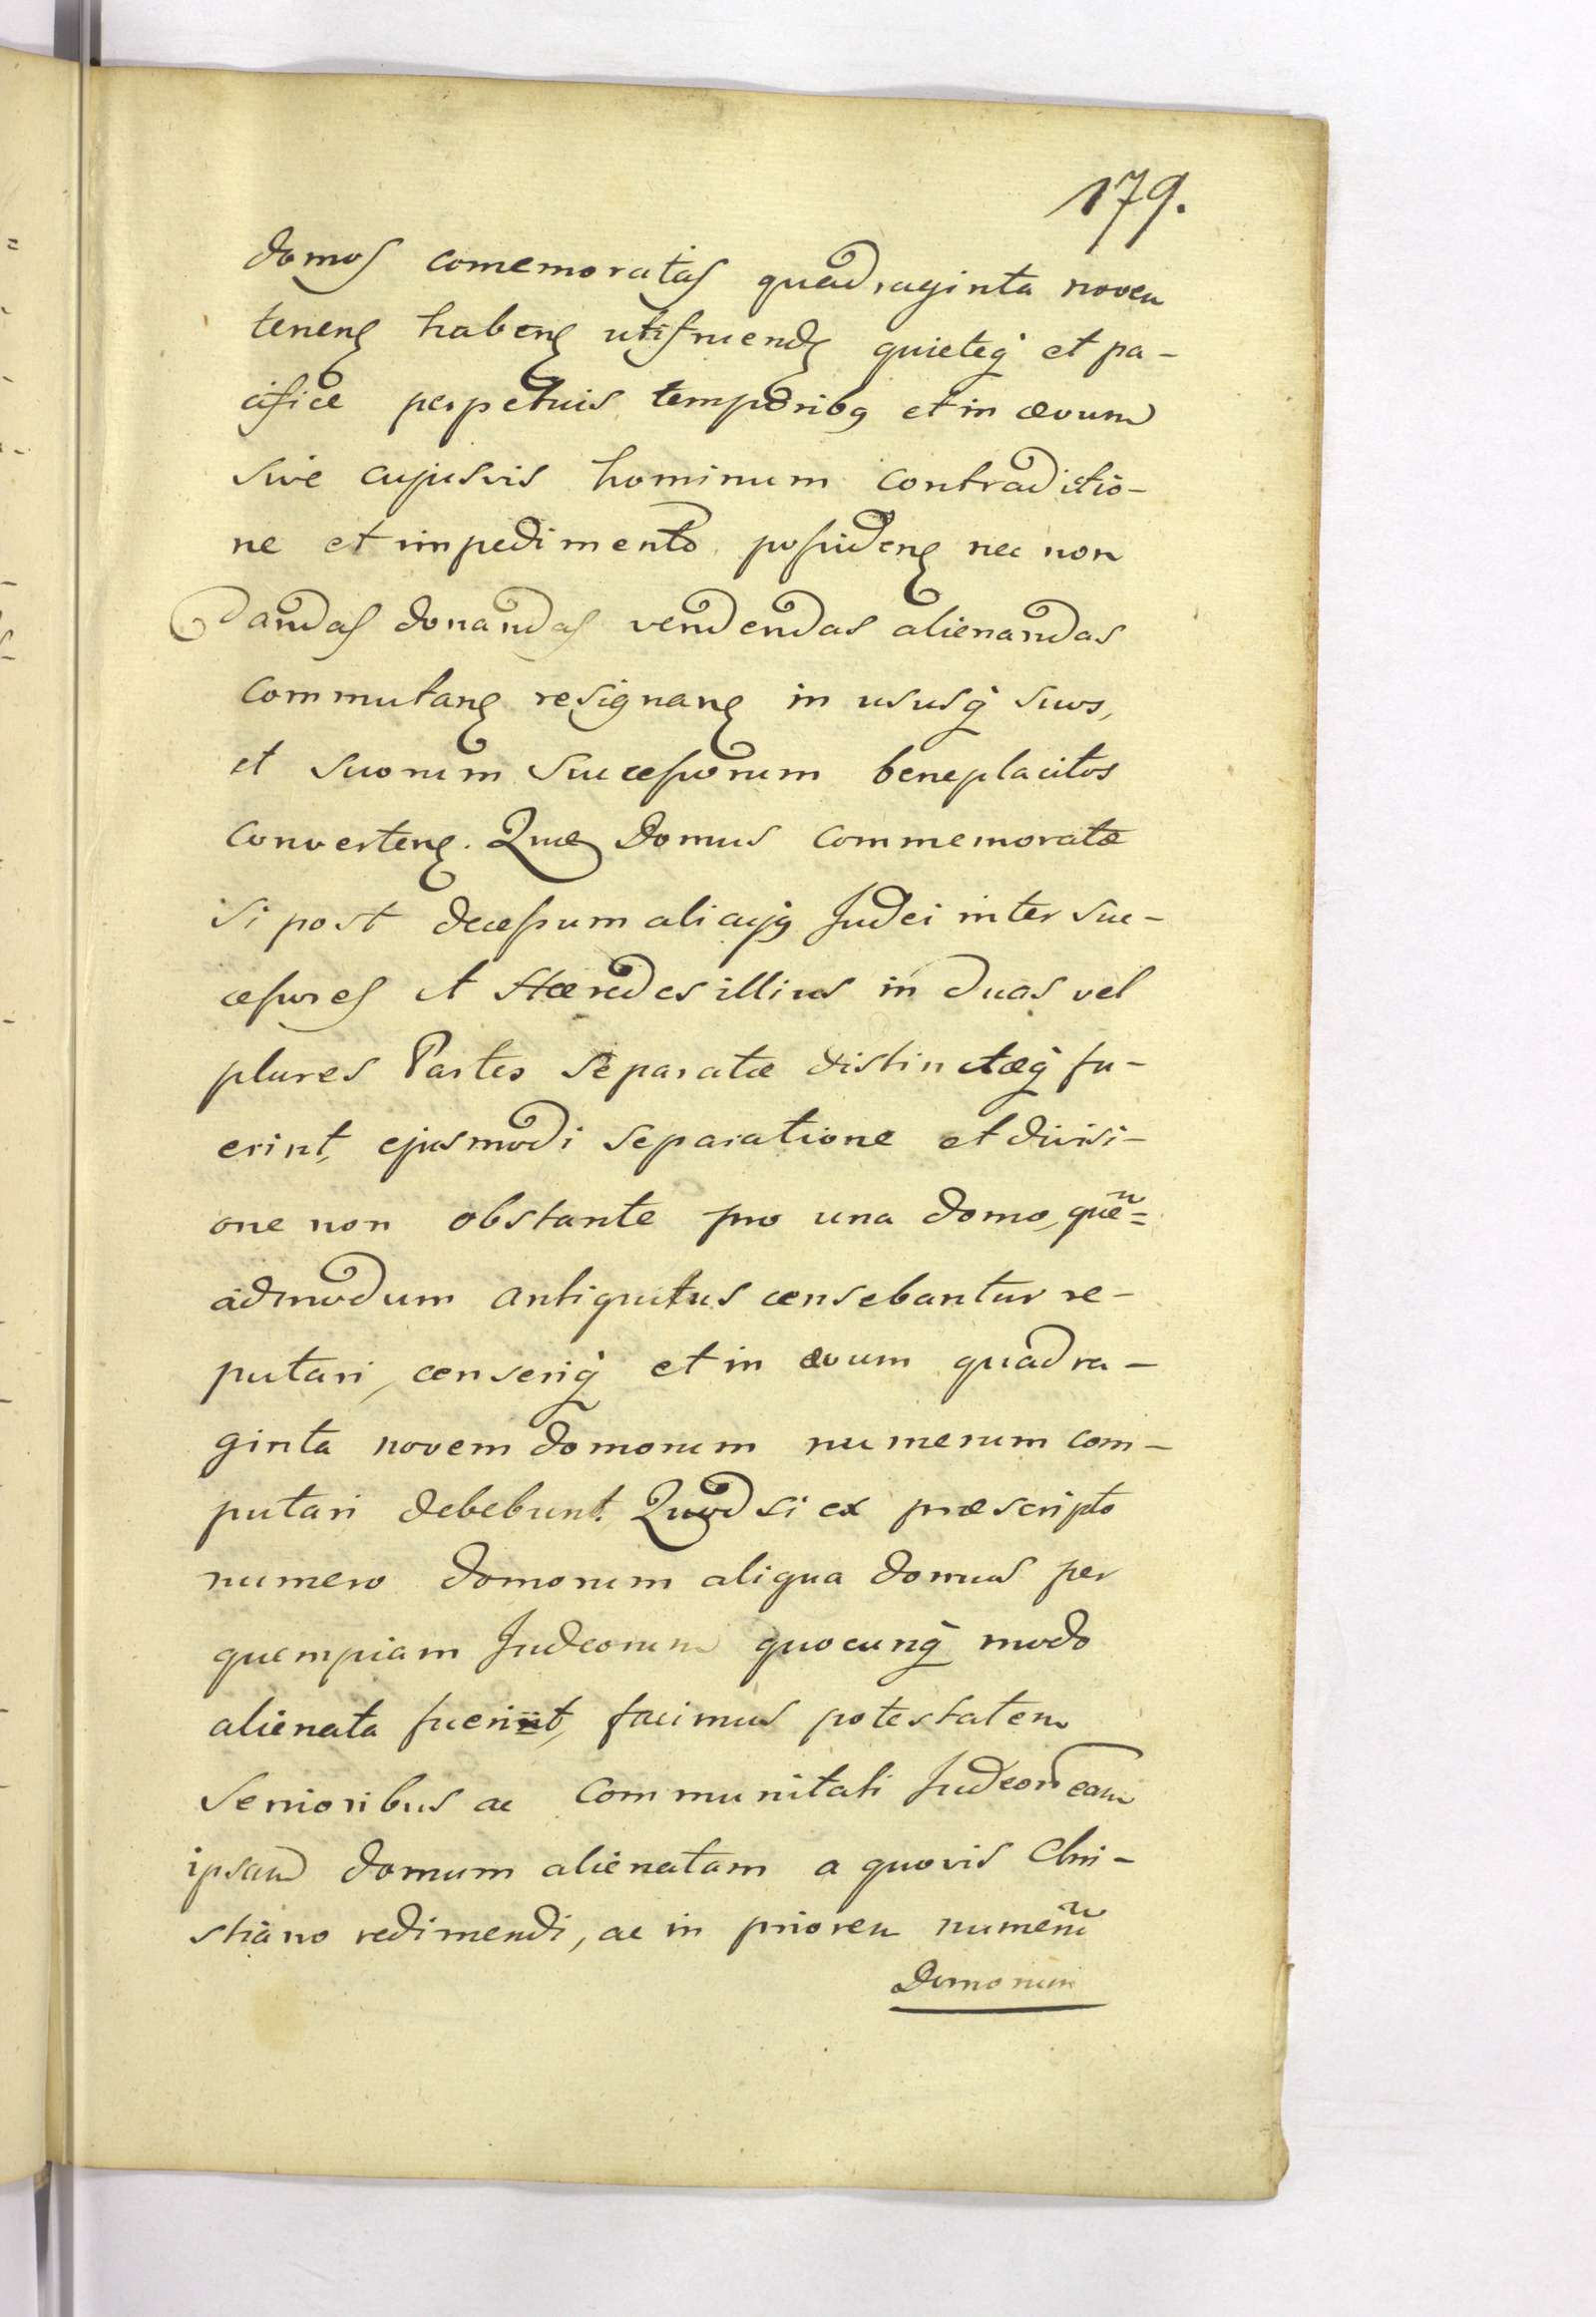 179.
domos comemoratas quadraginta novem
tenen͡g haben͡g utifruend͡g quieteq̃ et pa-
cifice perpetuis temporibꝯ et in ævum
sive cujusvis hominum contradictio-
ne et impedimento possiden͡g nec non
dandas donandas vendendas alienandas
commutan͡g resignan͡g in ususq̃ suos,
et suorum successorum beneplacitos
converten͡g. Quæ Domus commemoratæ
si post decessum alicujꝯ Judei inter suc-
cessores et Hæredes illius in duas vel
plures Partes separatæ distinctæq̃ fu-
erint, ejusmodi separatione et divisi-
one non obstante pro una domo, quẽ=
admodum antiquitus censebantur re-
putari, censeriq̃ et in ævum quadra-
ginta novem domorum numerum com-
putari debebunt. Quod si ex præscripto
numero domorum aliqua domus per
quempiam Judeorum quocunq̃ modo
alienata fuerint, facimus potestatem
Senioribus ac Communitati Judeor̃ eam
ipsam domum alienatam a quovis Chri-
stiano redimendi, ac in priorem numerũ
Domorum